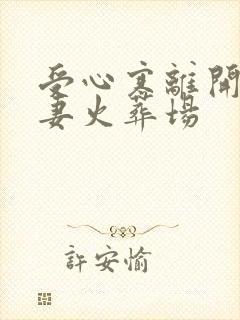 受心寒離開
妻火葬場
許安愉